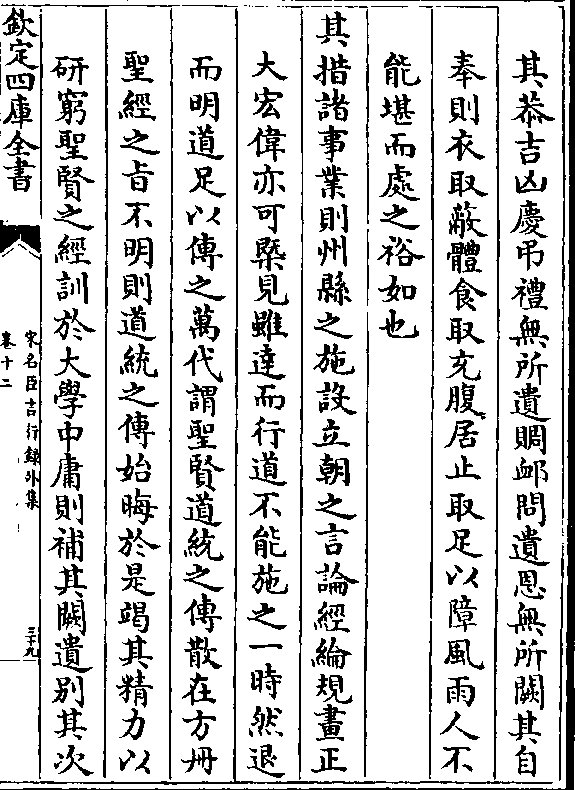 其恭吉凶慶弔禮無所遺賙卹問遺恩無所闕其自
奉則衣取蔽體食取充腹居止取足以障風雨人不
能堪而處之裕如也
其措諸事業則州縣之施設立朝之言論經綸規畫正
大宏偉亦可槩見雖達而行道不能施之一時然退
而明道足以傳之萬代謂聖賢道統之傳散在方冊
聖經之旨不明則道統之傳始晦於是竭其精力以
研窮聖賢之經訓於大學中庸則補其闕遺別其次
欽定四庫全書
宋名臣言行録外集
卷十二
三十九